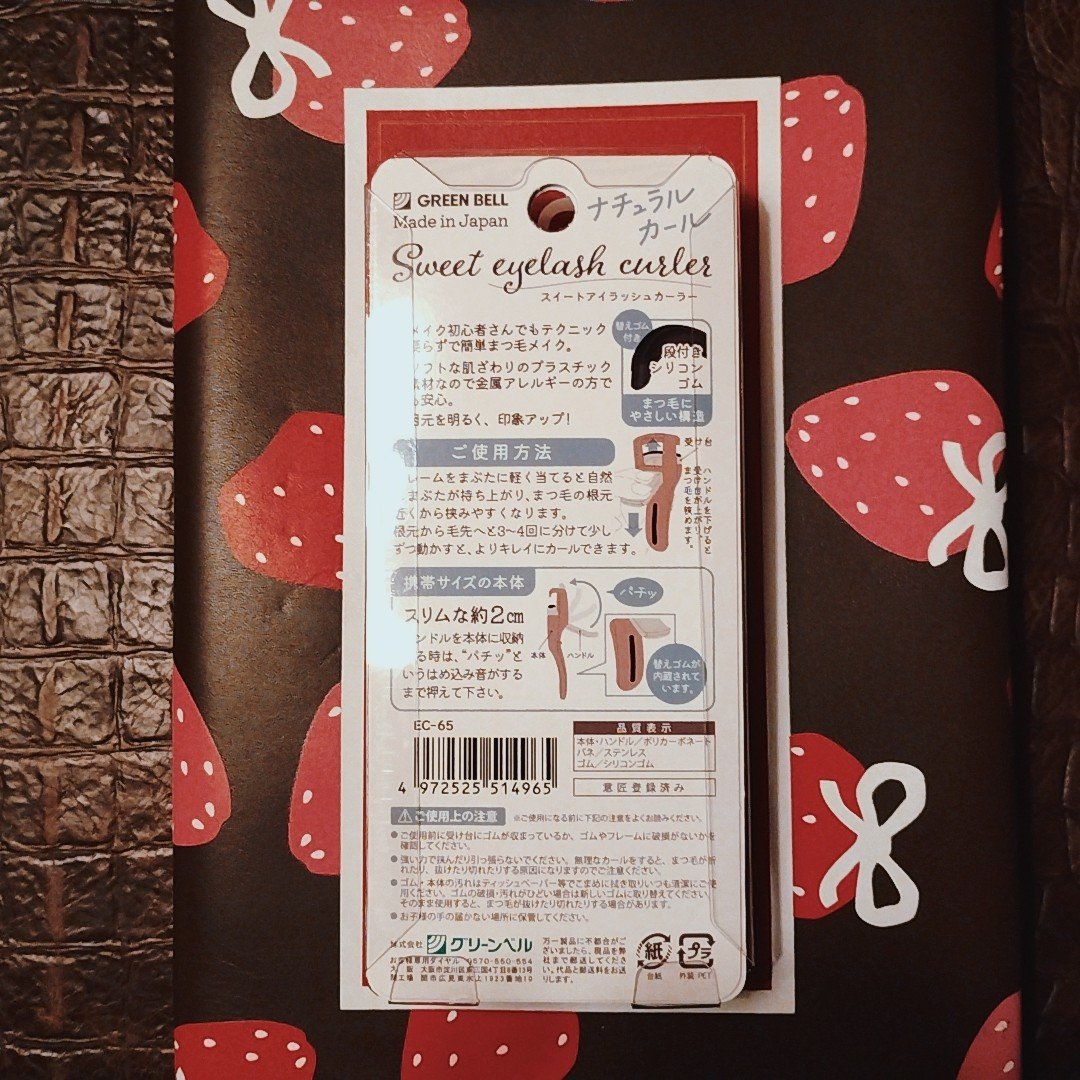 GREEN BELL
Made in Japan
ナチュラル
カール
Sweet eyelash curler
スイートアイラッシュカーラー
メイク初心者さんでもテクニック
要らずで簡単まつ毛メイク。
ソフトな肌ざわりのプラスチック
素材なので金属アレルギーの方で
も安心。
目元を明るく、印象アップ!
替えゴム
付き
段付き
シリコン
ゴム
まつ毛に
やさしい構造
ご使用方法
フレームをまぶたに軽く当てると自然
にまぶたが持ち上がり、まつ毛の根元
近くから挟みやすくなります。
根元から毛先へと3〜4回に分けて少し
ずつ動かすと、よりキレイにカールできます。
受け台
ハンドルを下げると
受け台が上がり、
まつ毛を挟めます。
携帯サイズの本体
スリムな約2cm
ハンドルを本体に収納
する時は、“パチッ”と
いうはめ込み音がする
まで押えて下さい。
パチッ
本体
ハンドル
替えゴムが
内蔵されて
います。
EC-65
4 972525 514965
品質表示
本体・ハンドル/ポリカーボネート
バネ/ステンレス
ゴム/シリコンゴム
意匠登録済み
⚠ご使用上の注意
※ご使用になる前に下記の注意をよくお読みください。
●ご使用前に受け台にゴムが収まっているか、ゴムやフレームに破損がないかを
確認してください。
●強い力で挟んだり引っ張らないでください。無理なカールをすると、まつ毛が折
れたり、抜けたり切れたりする原因になりますのでご注意ください。
●ゴム・本体の汚れはティッシュペーパー等でこまめに拭き取りいつも清潔にご使
用ください。ゴムの破損・汚れがひどい場合は新しいゴムに取り替えてください。
そのまま使用すると、まつ毛が抜けたり切れたりする場合があります。
●お子様の手の届かない場所に保管してください。
株式会社 グリーンベル
お客様専用ダイヤル 0570-550-554
大阪 大阪市淀川区東三国4丁目8番13号
関工場 関市広見東水上1923番地19
万一製品に不都合がご
ざいましたら、現品を弊
社まで郵送してくださ
い。代品と郵送料をお送
りします。
紙
台紙
プラ
外装:PET